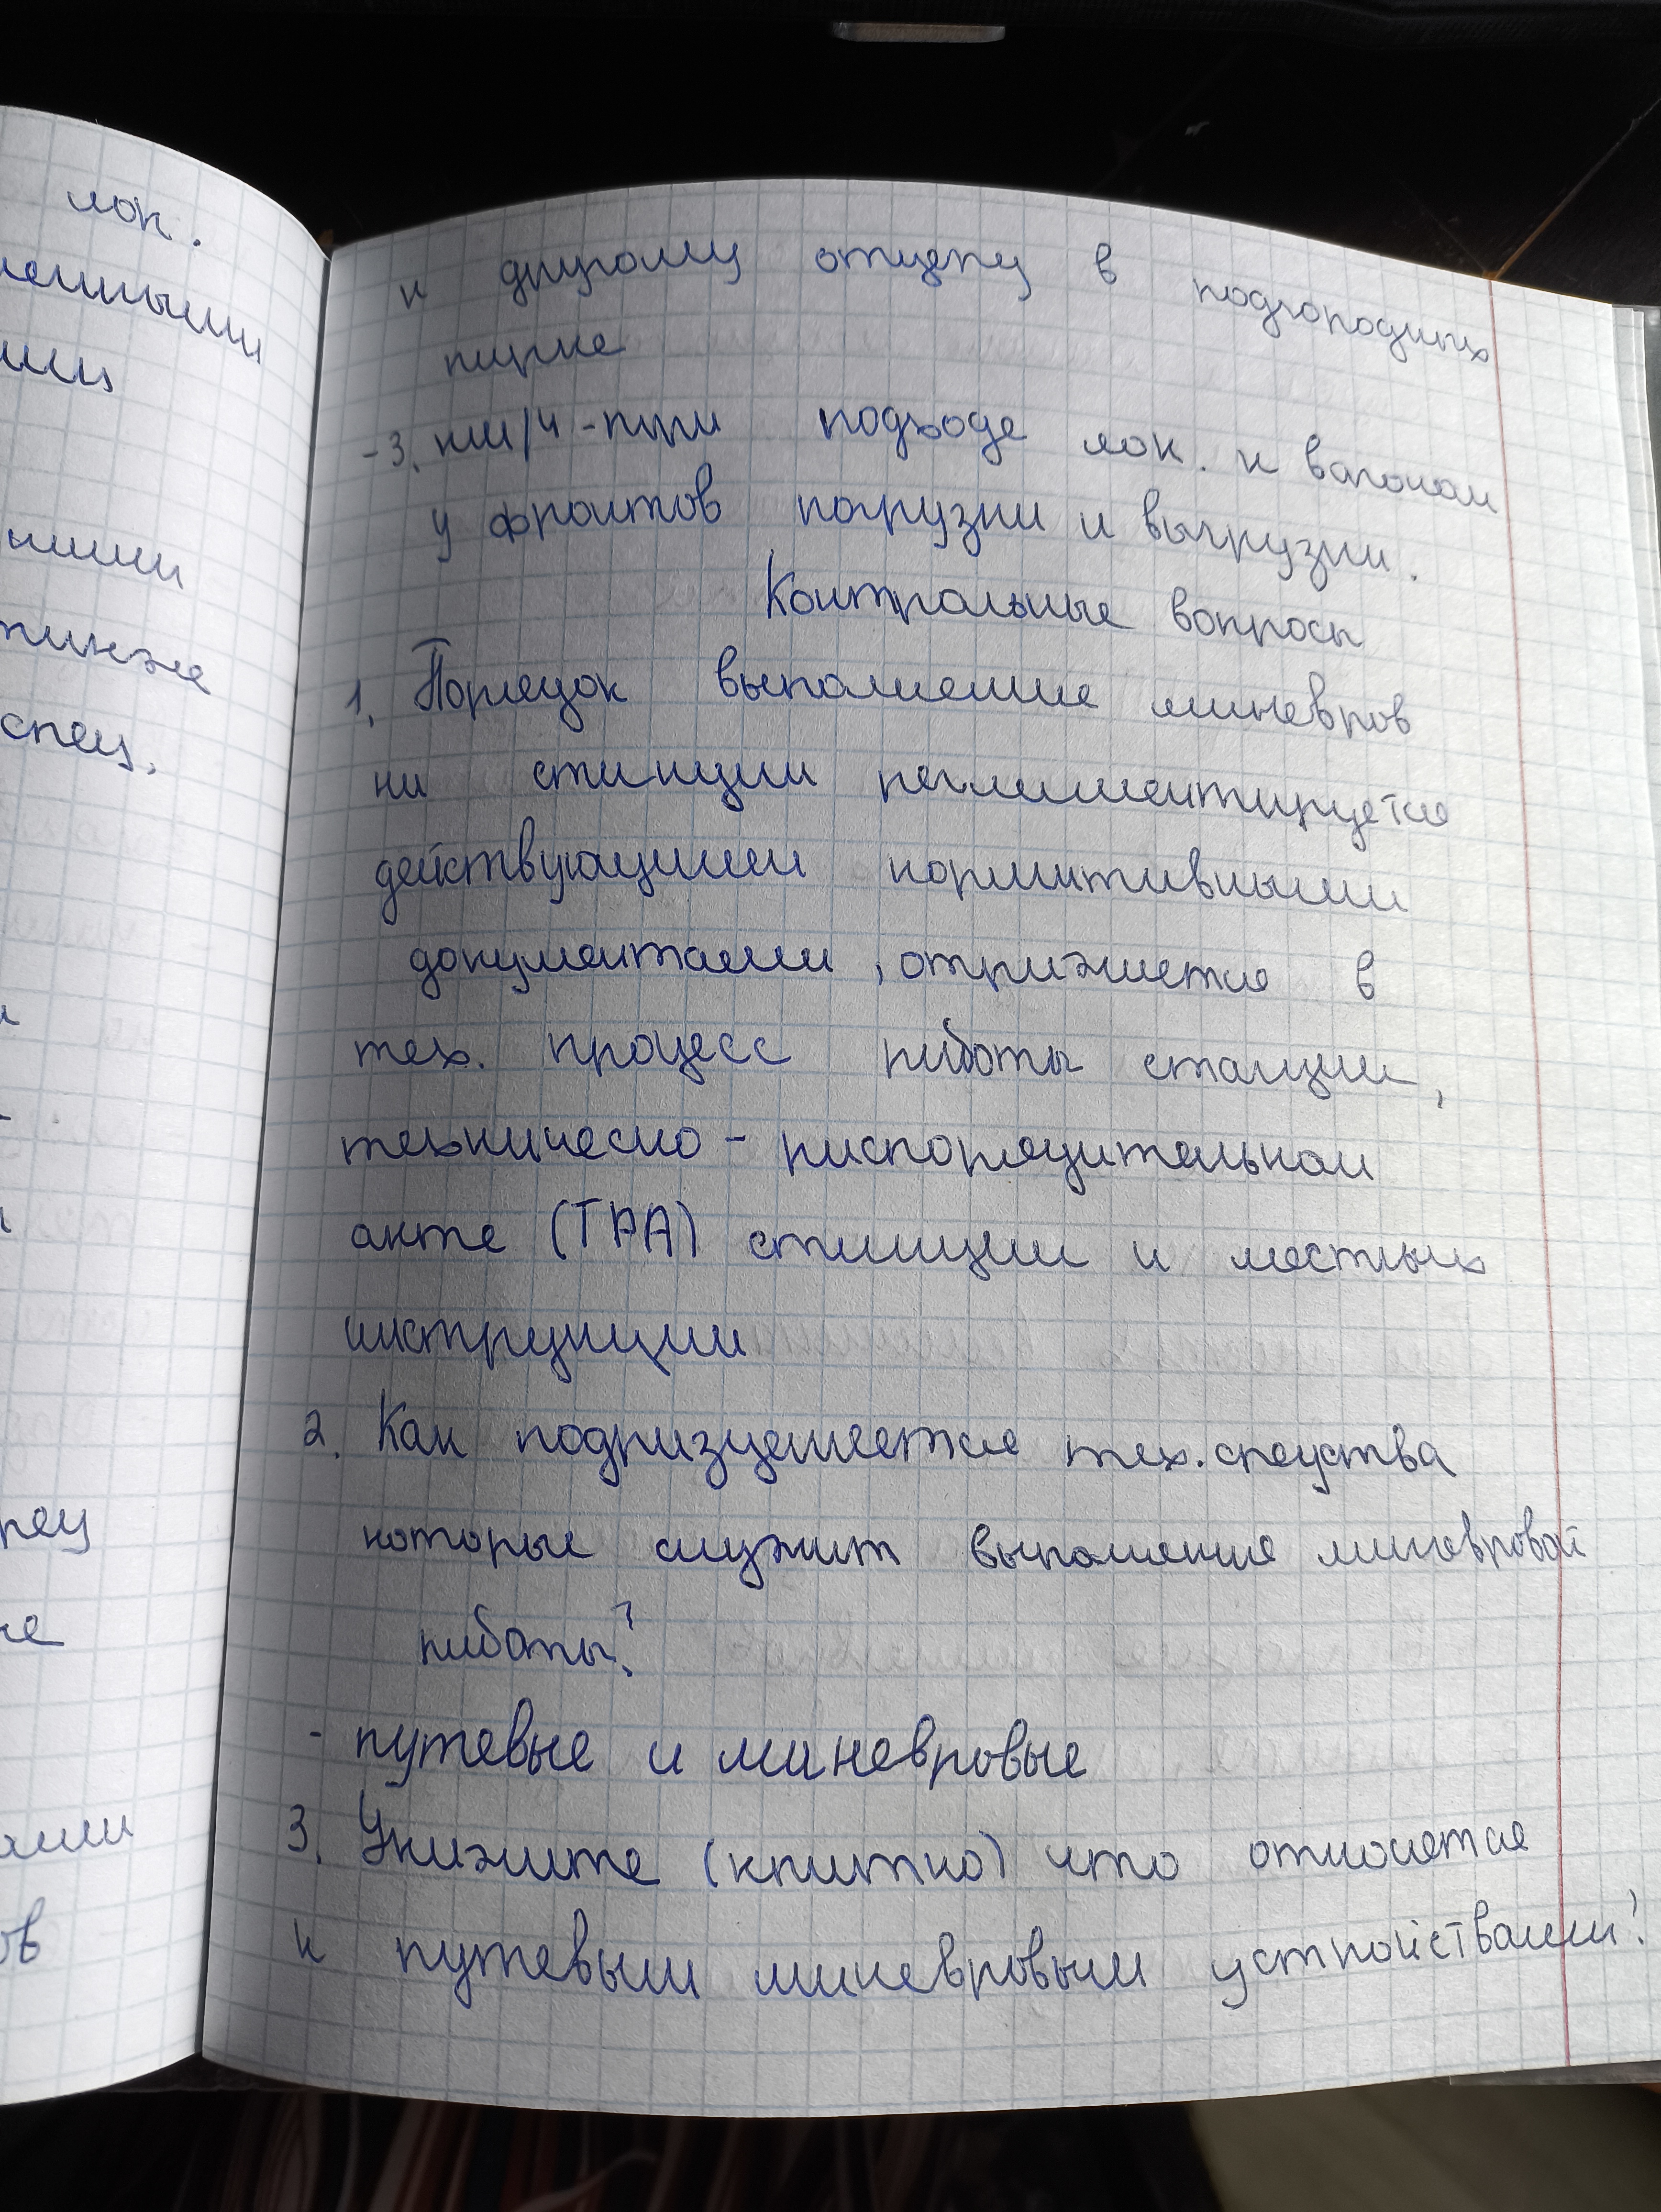 лок.
спец.
к другому отцепу в подгородных
парке
-3. км/ч - при подходе лок. к вагонам
у фронтов погрузки и выгрузки.
Контрольные вопросы
1. Порядок выполнение маневров
на станции регламентируется
действующими нормативными
документами, отражается в
тех. процесс работы станции,
техническо - распорядительном
акте (ТРА) станции и местных
инструкции
2. Как подразделяется тех. средства
которые служат выполнение маневровой
работы?
- путевые и маневровые
3. Укажите (кратко) что относится
к путевым маневровым устройствами?